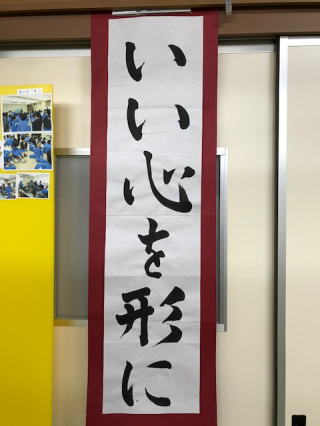 いい心を形に